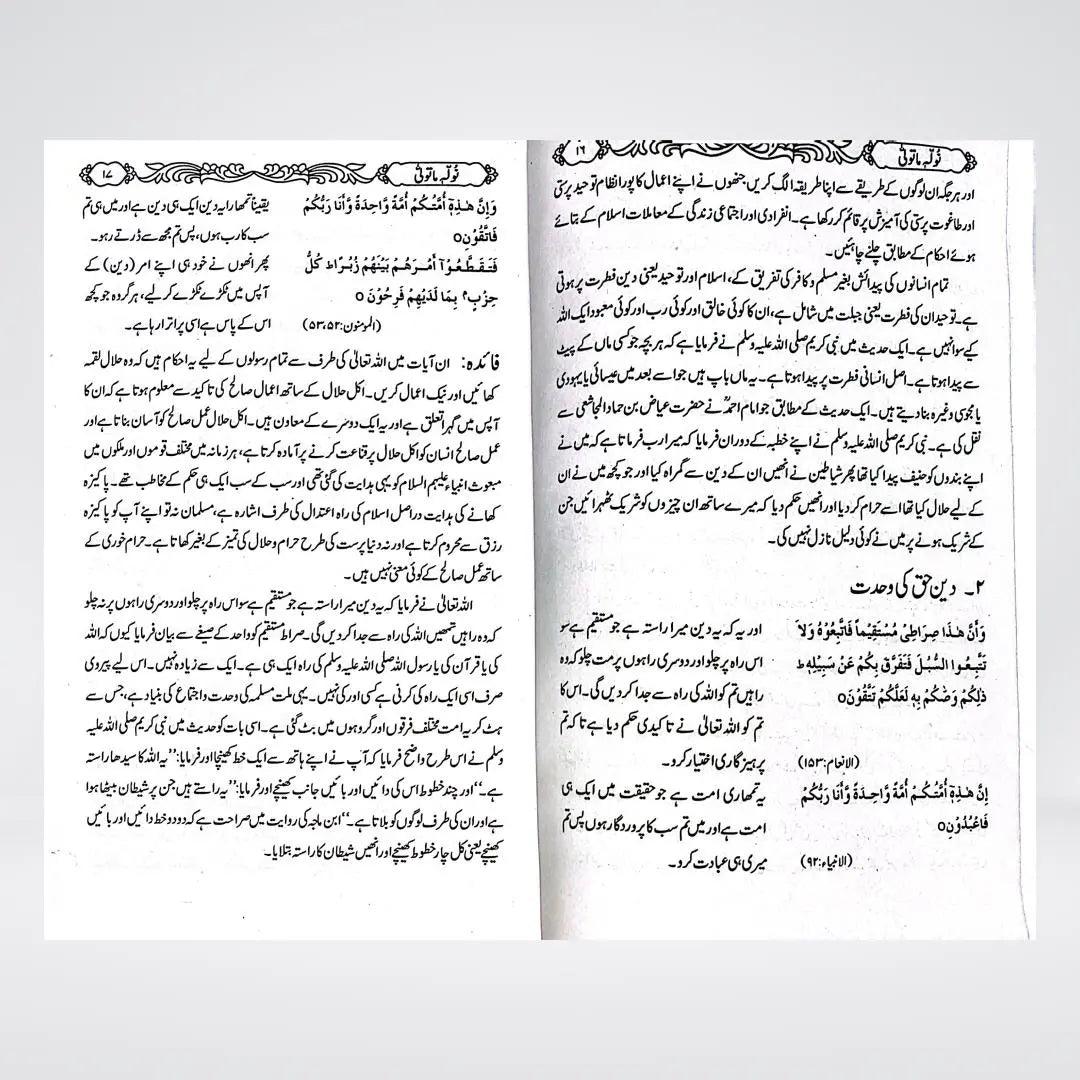 نُوَلِّہٖ مَا تَوَلّٰی
۱۶
اور ہر جگہ ان لوگوں کے طریقے سے اپنا طریقہ الگ کریں جنھوں نے اپنے اعمال کا پورا نظام توحید پرستی
اور طاغوت پرستی کی آمیزش پر قائم کر رکھا ہے۔ انفرادی اور اجتماعی زندگی کے معاملات اسلام کے بتائے
ہوئے احکام کے مطابق چلنے چاہئیں۔
تمام انسانوں کی پیدائش بغیر مسلم و کافر کی تفریق کے، اسلام اور توحید یعنی دین فطرت پر ہوتی
ہے۔ توحید ان کی فطرت یعنی جبلت میں شامل ہے، ان کا کوئی خالق اور کوئی رب اور کوئی معبود ایک اللہ
کے سوا نہیں ہے۔ ایک حدیث میں نبی کریم صلی اللہ علیہ وسلم نے فرمایا ہے کہ ہر بچہ جو کسی ماں کے پیٹ
سے پیدا ہوتا ہے۔ اصل انسانی فطرت پر پیدا ہوتا ہے۔ یہ ماں باپ ہیں جو اسے بعد میں عیسائی یا یہودی
یا مجوسی وغیرہ بنا دیتے ہیں۔ ایک حدیث کے مطابق جو امام احمدؒ نے حضرت عیاض بن حماد المجاشعی سے
نقل کی ہے۔ نبی کریم صلی اللہ علیہ وسلم نے اپنے خطبہ کے دوران فرمایا کہ میرا رب فرماتا ہے کہ میں نے
اپنے بندوں کو حنیف پیدا کیا تھا پھر شیاطین نے انھیں ان کے دین سے گمراہ کیا اور جو کچھ میں نے ان
کے لیے حلال کیا تھا اسے حرام کر دیا اور انھیں حکم دیا کہ میرے ساتھ ان چیزوں کو شریک ٹھہرائیں جن
کے شریک ہونے پر میں نے کوئی دلیل نازل نہیں کی۔
۲۔ دین حق کی وحدت
وَأَنَّ هٰذَا صِرَاطِیْ مُسْتَقِیْماً فَاتَّبِعُوْهُ وَلَا
تَتَّبِعُوا السُّبُلَ فَتَفَرَّقَ بِكُمْ عَنْ سَبِیْلِهٖ ط
ذٰلِكُمْ وَصّٰكُمْ بِهٖ لَعَلَّكُمْ تَتَّقُوْنَ o
(الانعام:۱۵۳)
اور یہ کہ یہ دین میرا راستہ ہے جو مستقیم ہے سو
اس راہ پر چلو اور دوسری راہوں پر مت چلو کہ وہ
راہیں تم کو اللہ کی راہ سے جدا کردیں گی۔ اس کا
تم کو اللہ تعالیٰ نے تاکیدی حکم دیا ہے تاکہ تم
پرہیزگاری اختیار کرو۔
إِنَّ هٰذِهٖٓ أُمَّتُكُمْ أُمَّةً وَّاحِدَةً وَّأَنَا رَبُّكُمْ
فَاعْبُدُوْنِ o
(الانبیاء:۹۲)
یہ تمھاری امت ہے جو حقیقت میں ایک ہی
امت ہے اور میں تم سب کا پروردگار ہوں پس تم
میری ہی عبادت کرو۔
نُوَلِّہٖ مَا تَوَلّٰی
۱۷
وَإِنَّ هٰذِهٖٓ أُمَّتُكُمْ أُمَّةً وَّاحِدَةً وَّأَنَا رَبُّكُمْ
فَاتَّقُوْنِ o
فَتَقَطَّعُوْآ أَمْرَهُمْ بَیْنَهُمْ زُبُرًا ط كُلُّ
حِزْبٍ م بِمَا لَدَیْهِمْ فَرِحُوْنَ o
(المومنون:۵۲، ۵۳)
یقیناً تمھارا یہ دین ایک ہی دین ہے اور میں ہی تم
سب کا رب ہوں، پس تم مجھ سے ڈرتے رہو۔
پھر انھوں نے خود ہی اپنے امر (دین) کے
آپس میں ٹکڑے ٹکڑے کر لیے، ہر گروہ جو کچھ
اس کے پاس ہے اسی پر اترا رہا ہے۔
فائدہ: ان آیات میں اللہ تعالیٰ کی طرف سے تمام رسولوں کے لیے یہ احکام ہیں کہ وہ حلال لقمہ
کھائیں اور نیک اعمال کریں۔ اکل حلال کے ساتھ اعمال صالح کی تاکید سے معلوم ہوتا ہے کہ ان کا
آپس میں گہرا تعلق ہے اور یہ ایک دوسرے کے معاون ہیں۔ اکل حلال عمل صالح کو آسان بناتا ہے اور
عمل صالح انسان کو اکل حلال پر قناعت کرنے پر آمادہ کرتا ہے، ہر زمانہ میں مختلف قوموں اور ملکوں میں
مبعوث انبیاء علیہم السلام کو یہی ہدایت کی گئی تھی اور سب کے سب ایک ہی حکم کے مخاطب تھے۔ پاکیزہ
کھانے کی ہدایت دراصل اسلام کی راہ اعتدال کی طرف اشارہ ہے، مسلمان نہ تو اپنے آپ کو پاکیزہ
رزق سے محروم کرتا ہے اور نہ دنیا پرست کی طرح حرام و حلال کی تمیز کے بغیر کھاتا ہے۔ حرام خوری کے
ساتھ عمل صالح کے کوئی معنی نہیں ہیں۔
اللہ تعالیٰ نے فرمایا کہ یہ دین میرا راستہ ہے جو مستقیم ہے سو اس راہ پر چلو اور دوسری راہوں پر نہ چلو
کہ وہ راہیں تمھیں اللہ کی راہ سے جدا کر دیں گی۔ صراط مستقیم کو واحد کے صیغے سے بیان فرمایا کیوں کہ اللہ
کی یا قرآن کی یا رسول اللہ صلی اللہ علیہ وسلم کی راہ ایک ہی ہے۔ ایک سے زیادہ نہیں۔ اس لیے پیروی
صرف اسی ایک راہ کی کرنی ہے کسی اور کی نہیں۔ یہی ملت مسلمہ کی وحدت و اجتماع کی بنیاد ہے، جس سے
ہٹ کر یہ امت مختلف فرقوں اور گروہوں میں بٹ گئی ہے۔ اسی بات کو حدیث میں نبی کریم صلی اللہ علیہ
وسلم نے اس طرح واضح فرمایا کہ آپ نے اپنے ہاتھ سے ایک خط کھینچا اور فرمایا: ’’یہ اللہ کا سیدھا راستہ
ہے۔‘‘ اور چند خطوط اس کی دائیں اور بائیں جانب کھینچے اور فرمایا: ’’یہ راستے ہیں جن پر شیطان بیٹھا ہوا
ہے اور ان کی طرف لوگوں کو بلاتا ہے۔‘‘ ابن ماجہ کی روایت میں صراحت ہے کہ دو دو خط دائیں اور بائیں
کھینچے یعنی کل چار خطوط کھینچے اور انھیں شیطان کا راستہ بتلایا۔